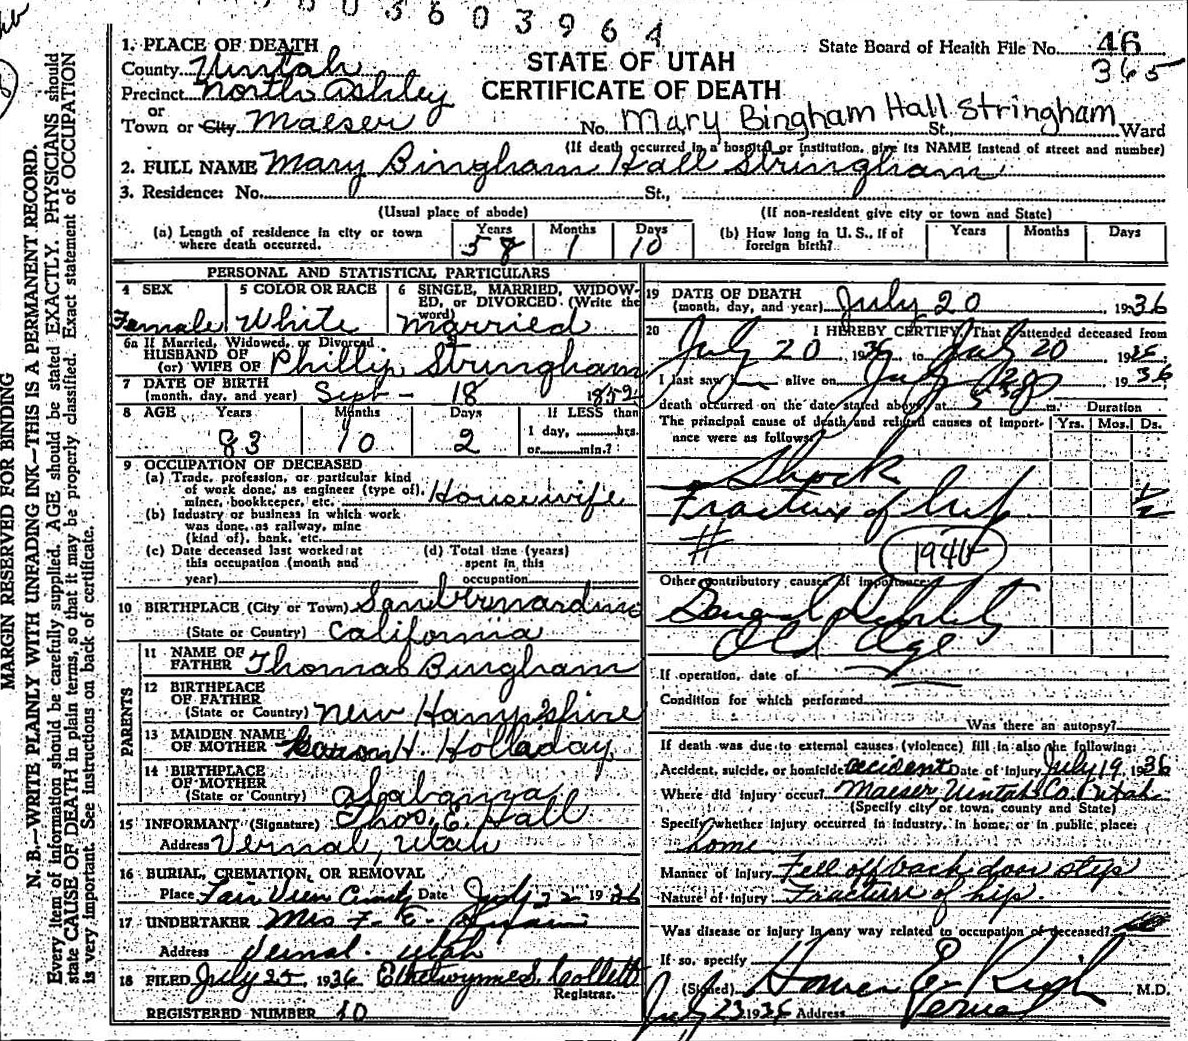 0 0 3 6 0 3 9 6 4
MARGIN RESERVED FOR BINDING
N. B.—WRITE PLAINLY WITH UNFADING INK—THIS IS A PERMANENT RECORD.
Every item of information should be carefully supplied. AGE should be stated EXACTLY. PHYSICIANS should
state CAUSE OF DEATH in plain terms, so that it may be properly classified. Exact statement of OCCUPATION
is very important. See instructions on back of certificate.
STATE OF UTAH
CERTIFICATE OF DEATH
State Board of Health File No. 46
365
1. PLACE OF DEATH
County Uintah
Precinct North Ashley
or
Town or City Maeser No. Mary Bingham Hall Stringham St., Ward
(If death occurred in a hospital or institution, give its NAME instead of street and number)
2. FULL NAME Mary Bingham Hall Stringham
3. Residence: No. St.,
(Usual place of abode) (If non-resident give city or town and State)
(a) Length of residence in city or town where death occurred. Years 58 Months 1 Days 10
(b) How long in U. S., if of foreign birth? Years Months Days
PERSONAL AND STATISTICAL PARTICULARS
4 SEX Female
5 COLOR OR RACE White
6 SINGLE, MARRIED, WIDOWED, or DIVORCED (Write the word) Married
6a If Married, Widowed, or Divorced
HUSBAND OF
(or) WIFE OF Phillip Stringham
7 DATE OF BIRTH
(month, day, and year) Sept - 18 1852
8 AGE Years 83 Months 10 Days 2 If LESS than 1 day, hrs. or min.?
9 OCCUPATION OF DECEASED
(a) Trade, profession, or particular kind
of work done, as engineer (type of),
miner, bookkeeper, etc. Housewife
(b) Industry or business in which work
was done, as railway, mine
(kind of), bank, etc.
(c) Date deceased last worked at this occupation (month and year)
(d) Total time (years) spent in this occupation
10 BIRTHPLACE (City or Town) San Bernardino
(State or Country) California
PARENTS
11 NAME OF FATHER Thomas Bingham
12 BIRTHPLACE OF FATHER
(State or Country) New Hampshire
13 MAIDEN NAME OF MOTHER H. Holladay
14 BIRTHPLACE OF MOTHER
(State or Country) Alabama
15 INFORMANT (Signature) Thos. E. Hall
Address Vernal, Utah
16 BURIAL, CREMATION, OR REMOVAL
Place Fair View Date July 22 1936
17 UNDERTAKER Mrs F. E.
Address Vernal. Utah
18 FILED July 25 1936 Ethelwynne S. Collett
Registrar.
REGISTERED NUMBER 10
19 DATE OF DEATH
(month, day, and year) July 20 1936
20 I HEREBY CERTIFY, That I attended deceased from
July 20 1936, to July 20, 1936
I last saw alive on July 20 1936
death occurred on the date stated above, at m. Duration
The principal cause of death and related causes of importance were as follows: Yrs. Mos. Ds.
Shock
Fracture of hip 1/2
#
194b
Other contributory causes of importance:
General Debility
Old Age
If operation, date of
Condition for which performed
Was there an autopsy?
If death was due to external causes (violence) fill in also the following:
Accident, suicide, or homicide accident Date of injury July 19, 1936
Where did injury occur? Maeser Uintah Co. Utah
(Specify city or town, county and State)
Specify whether injury occurred in industry, in home, or in public place:
home
Manner of Injury Fell off back door step
Nature of Injury Fracture of hip.
Was disease or injury in any way related to occupation of deceased?
If so, specify
(Signed) M.D.
July 23 1936 Address Vernal